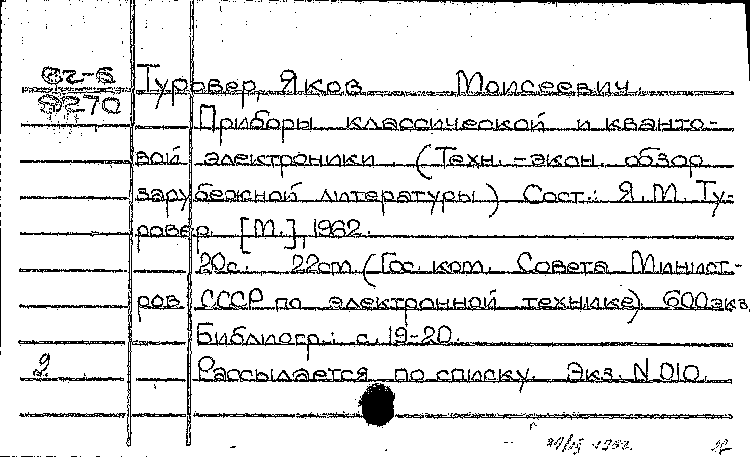 Туровер, Яков Моисеевич.
Приборы классической и кванто-
вой электроники (Техн.-экон. обзор
зарубежной литературы) Сост.: Я.М. Ту-
ровер. [М.], 1962.
20с. 22см (Гос. ком. Совета Минист-
ров СССР по электронной технике) 600экз
Библиогр.: с. 19-20.
2 Рассылается по списку. Экз. N 010.